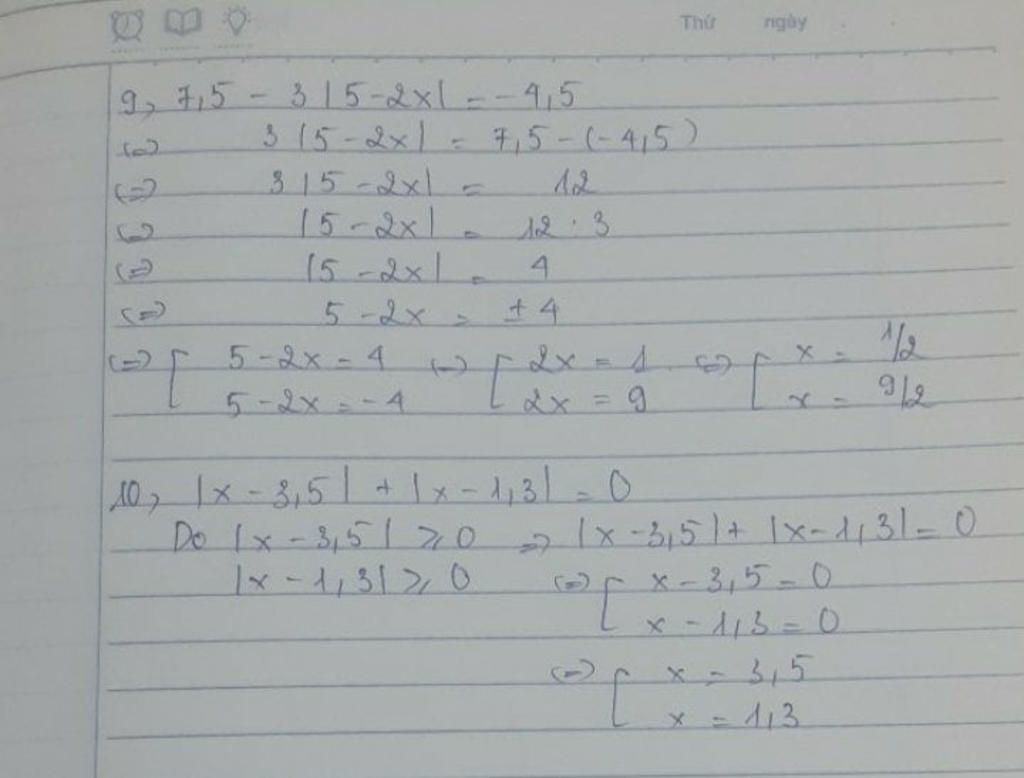 Thứ ngày
9, 7,5 - 3|5-2x| = -4,5
⇔ 3|5-2x| = 7,5-(-4,5)
⇔ 3|5-2x| = 12
⇔ |5-2x| = 12:3
⇔ |5-2x| = 4
⇔ 5-2x = ±4
⇔ [ 5-2x = 4 ⇔ [ 2x = 1 ⇔ [ x = 1/2
5-2x = -4 2x = 9 x = 9/2
10, |x-3,5| + |x-1,3| = 0
Do |x-3,5| ⩾ 0 ⇒ |x-3,5| + |x-1,3| = 0
|x-1,3| ⩾ 0 ⇔ [ x-3,5 = 0
x-1,3 = 0
⇔ [ x = 3,5
x = 1,3